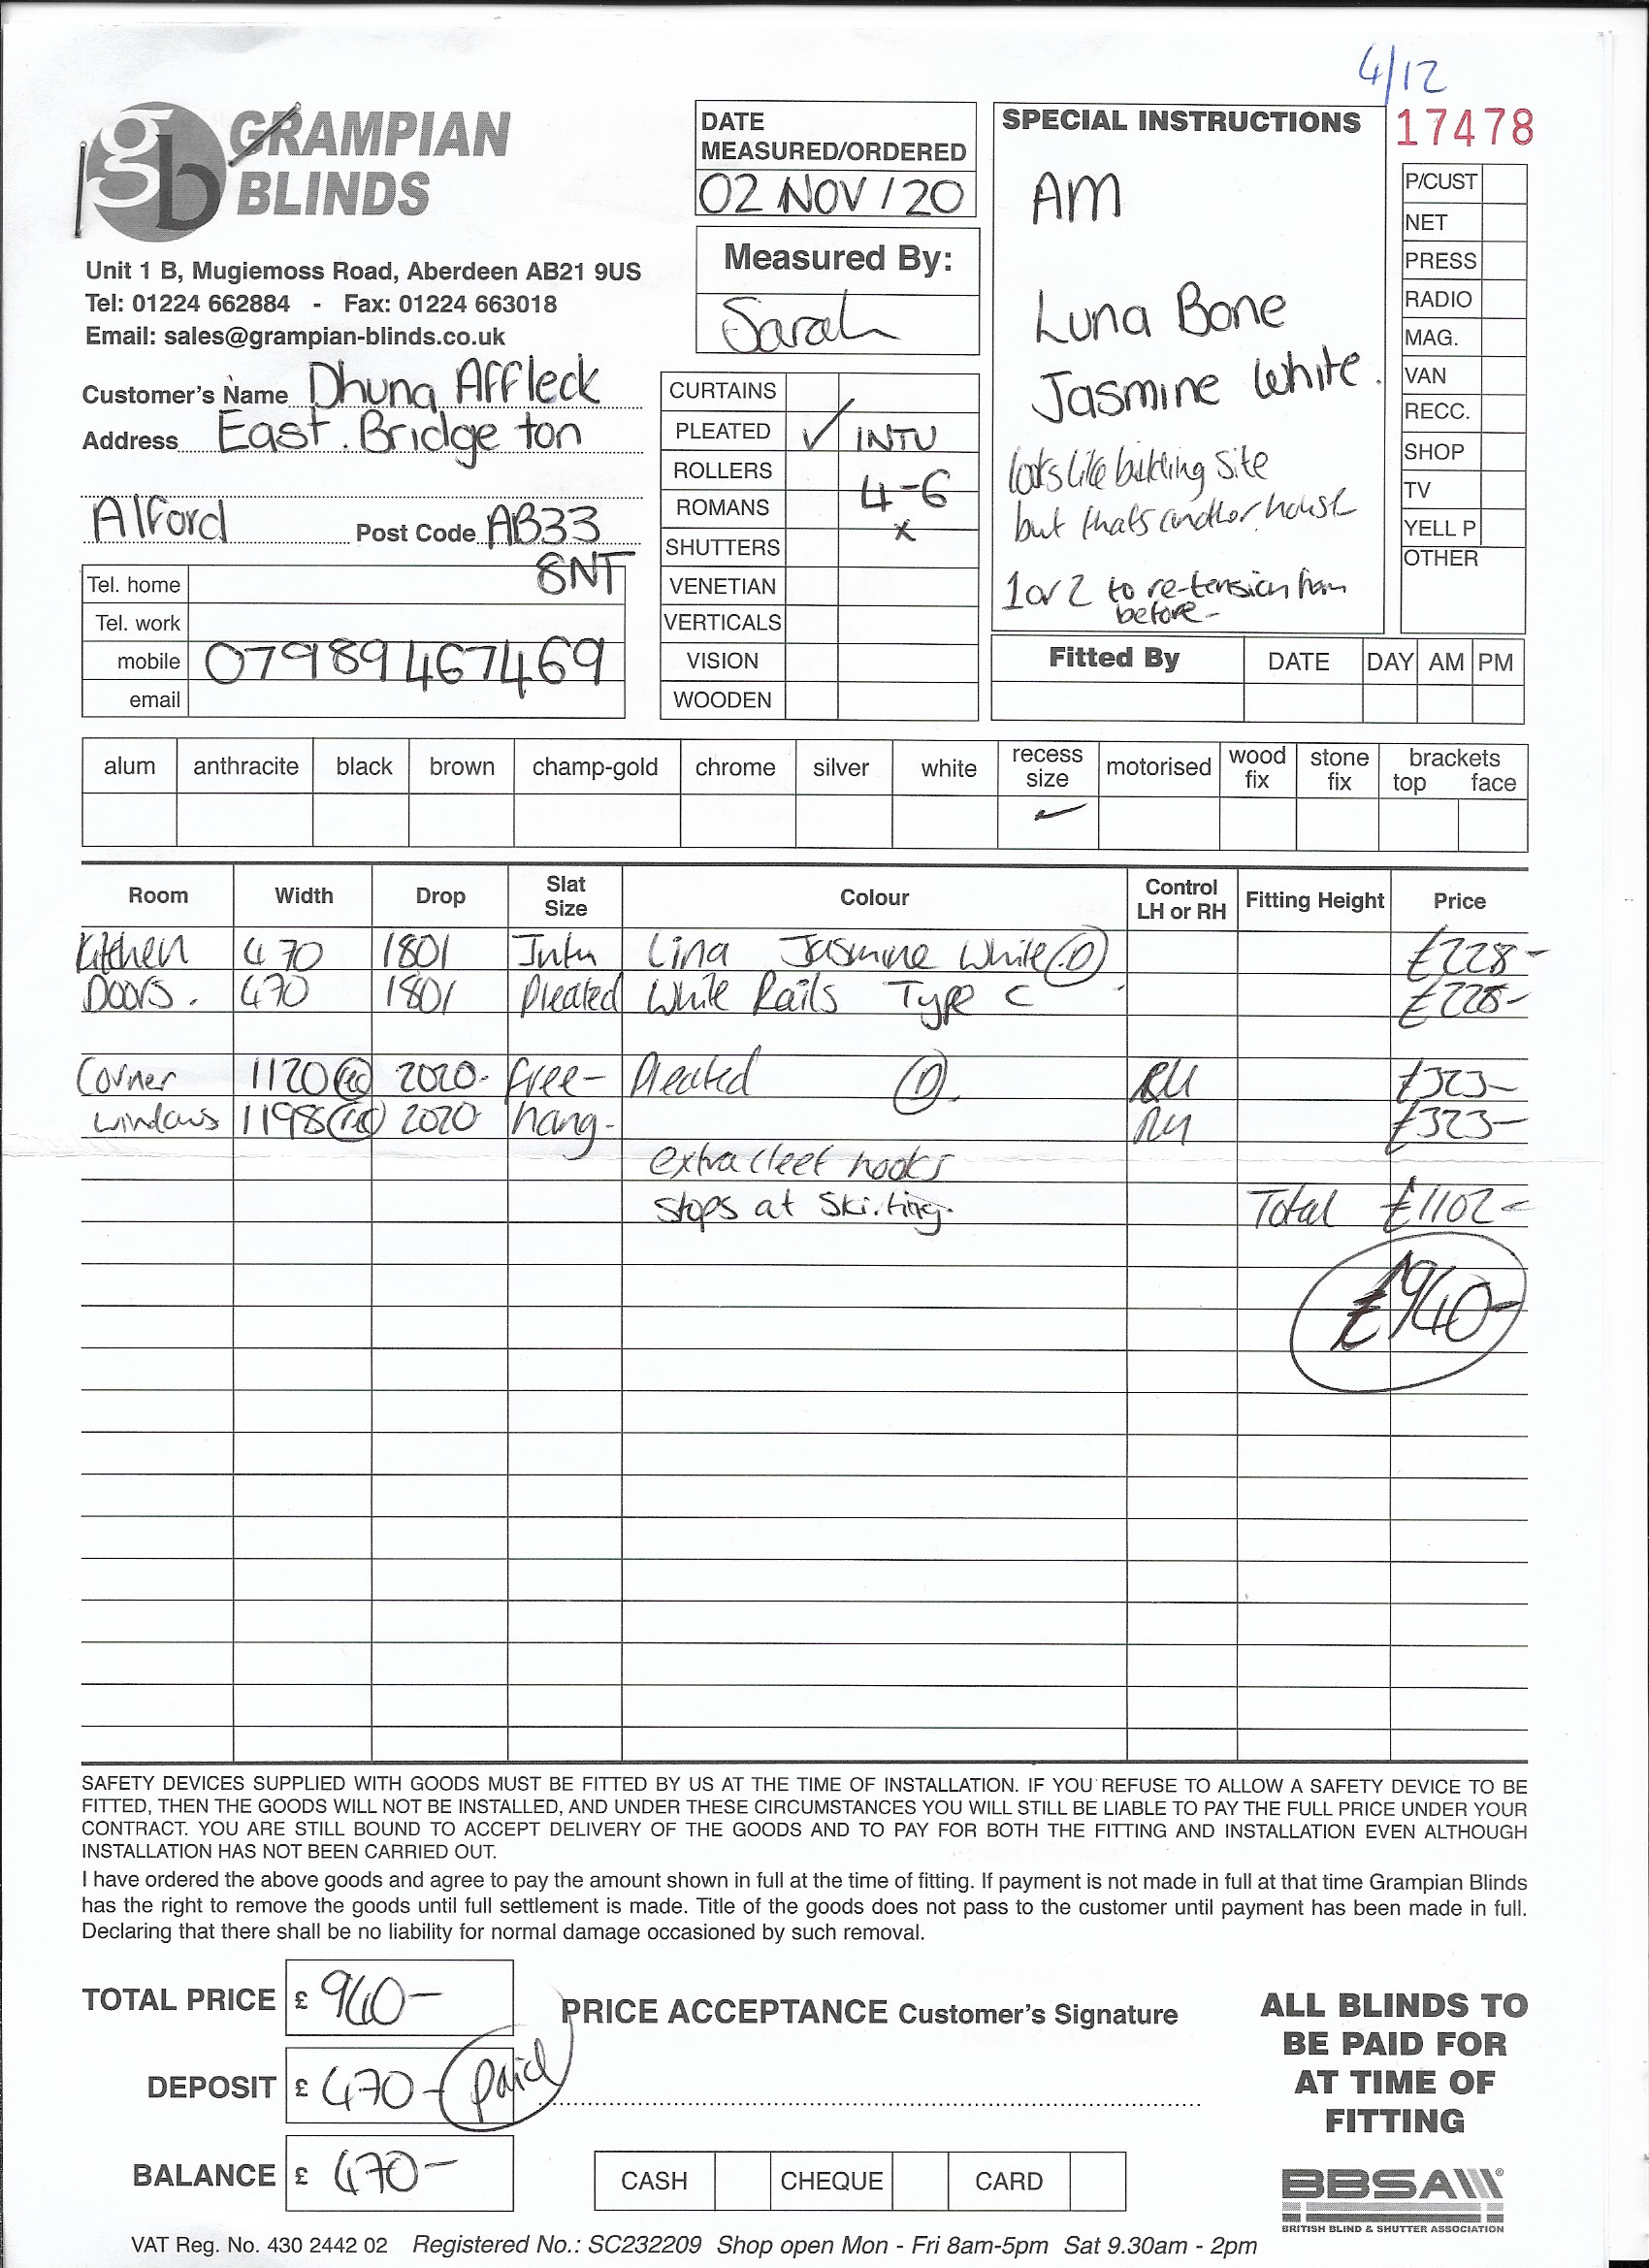 4/12
GRAMPIAN
BLINDS
gb
Unit 1 B, Mugiemoss Road, Aberdeen AB21 9US
Tel: 01224 662884 - Fax: 01224 663018
Email: sales@grampian-blinds.co.uk
Customer's Name Dhuna Affleck
Address East. Bridge ton
Alford Post Code AB33
8NT
Tel. home
Tel. work
mobile 07989467469
email
DATE
MEASURED/ORDERED
02 NOV / 20
Measured By:
Sarah
CURTAINS
PLEATED ✓ INTU
ROLLERS 4-6
ROMANS x
SHUTTERS
VENETIAN
VERTICALS
VISION
WOODEN
SPECIAL INSTRUCTIONS
AM
Luna Bone
Jasmine White.
looks like building site
but thats another house
1 or 2 to re-tension from
before-
17478
P/CUST
NET
PRESS
RADIO
MAG.
VAN
RECC.
SHOP
TV
YELL P
OTHER
Fitted By DATE DAY AM PM
alum anthracite black brown champ-gold chrome silver white recess size motorised wood fix stone fix brackets top face
✓
Room Width Drop Slat Size Colour Control LH or RH Fitting Height Price
Kitchen 470 1801 Intu Lina Jasmine White (D) £228-
Doors. 470 1801 Pleated White Rails Type C £228-
Corner 1120 (rec) 2020- free- Pleated (D). RH £323-
windows 1198 (rec) 2020 hang- RH £323-
extra cleet hooks
stops at Skirting. Total £1102-
£940-
SAFETY DEVICES SUPPLIED WITH GOODS MUST BE FITTED BY US AT THE TIME OF INSTALLATION. IF YOU REFUSE TO ALLOW A SAFETY DEVICE TO BE
FITTED, THEN THE GOODS WILL NOT BE INSTALLED, AND UNDER THESE CIRCUMSTANCES YOU WILL STILL BE LIABLE TO PAY THE FULL PRICE UNDER YOUR
CONTRACT. YOU ARE STILL BOUND TO ACCEPT DELIVERY OF THE GOODS AND TO PAY FOR BOTH THE FITTING AND INSTALLATION EVEN ALTHOUGH
INSTALLATION HAS NOT BEEN CARRIED OUT.
I have ordered the above goods and agree to pay the amount shown in full at the time of fitting. If payment is not made in full at that time Grampian Blinds
has the right to remove the goods until full settlement is made. Title of the goods does not pass to the customer until payment has been made in full.
Declaring that there shall be no liability for normal damage occasioned by such removal.
TOTAL PRICE £ 940-
DEPOSIT £ 470- paid
BALANCE £ 470-
PRICE ACCEPTANCE Customer's Signature
CASH CHEQUE CARD
ALL BLINDS TO
BE PAID FOR
AT TIME OF
FITTING
BBSA
BRITISH BLIND & SHUTTER ASSOCIATION
VAT Reg. No. 430 2442 02 Registered No.: SC232209 Shop open Mon - Fri 8am-5pm Sat 9.30am - 2pm